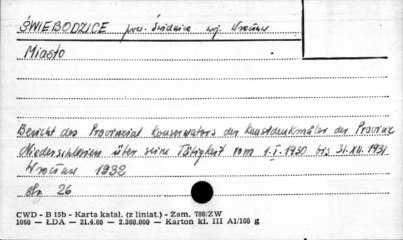 ŚWIEBODZICE pow. Świdnica woj. Wrocław
Miasto
Bericht des Provinzial Konservators der Kunstdenkmäler der Provinz
Niederschlesien über seine Tätigkeit vom 1.I.1930 bis 31.XII.1931.
Wrocław 1932
str. 26
CWD - B 15b - Karta katal. (z liniat.) - Zam. 788/ZW
1060 — ŁDA — 21.4.60 — 2.360.000 — Karton kl. III A1/160 g